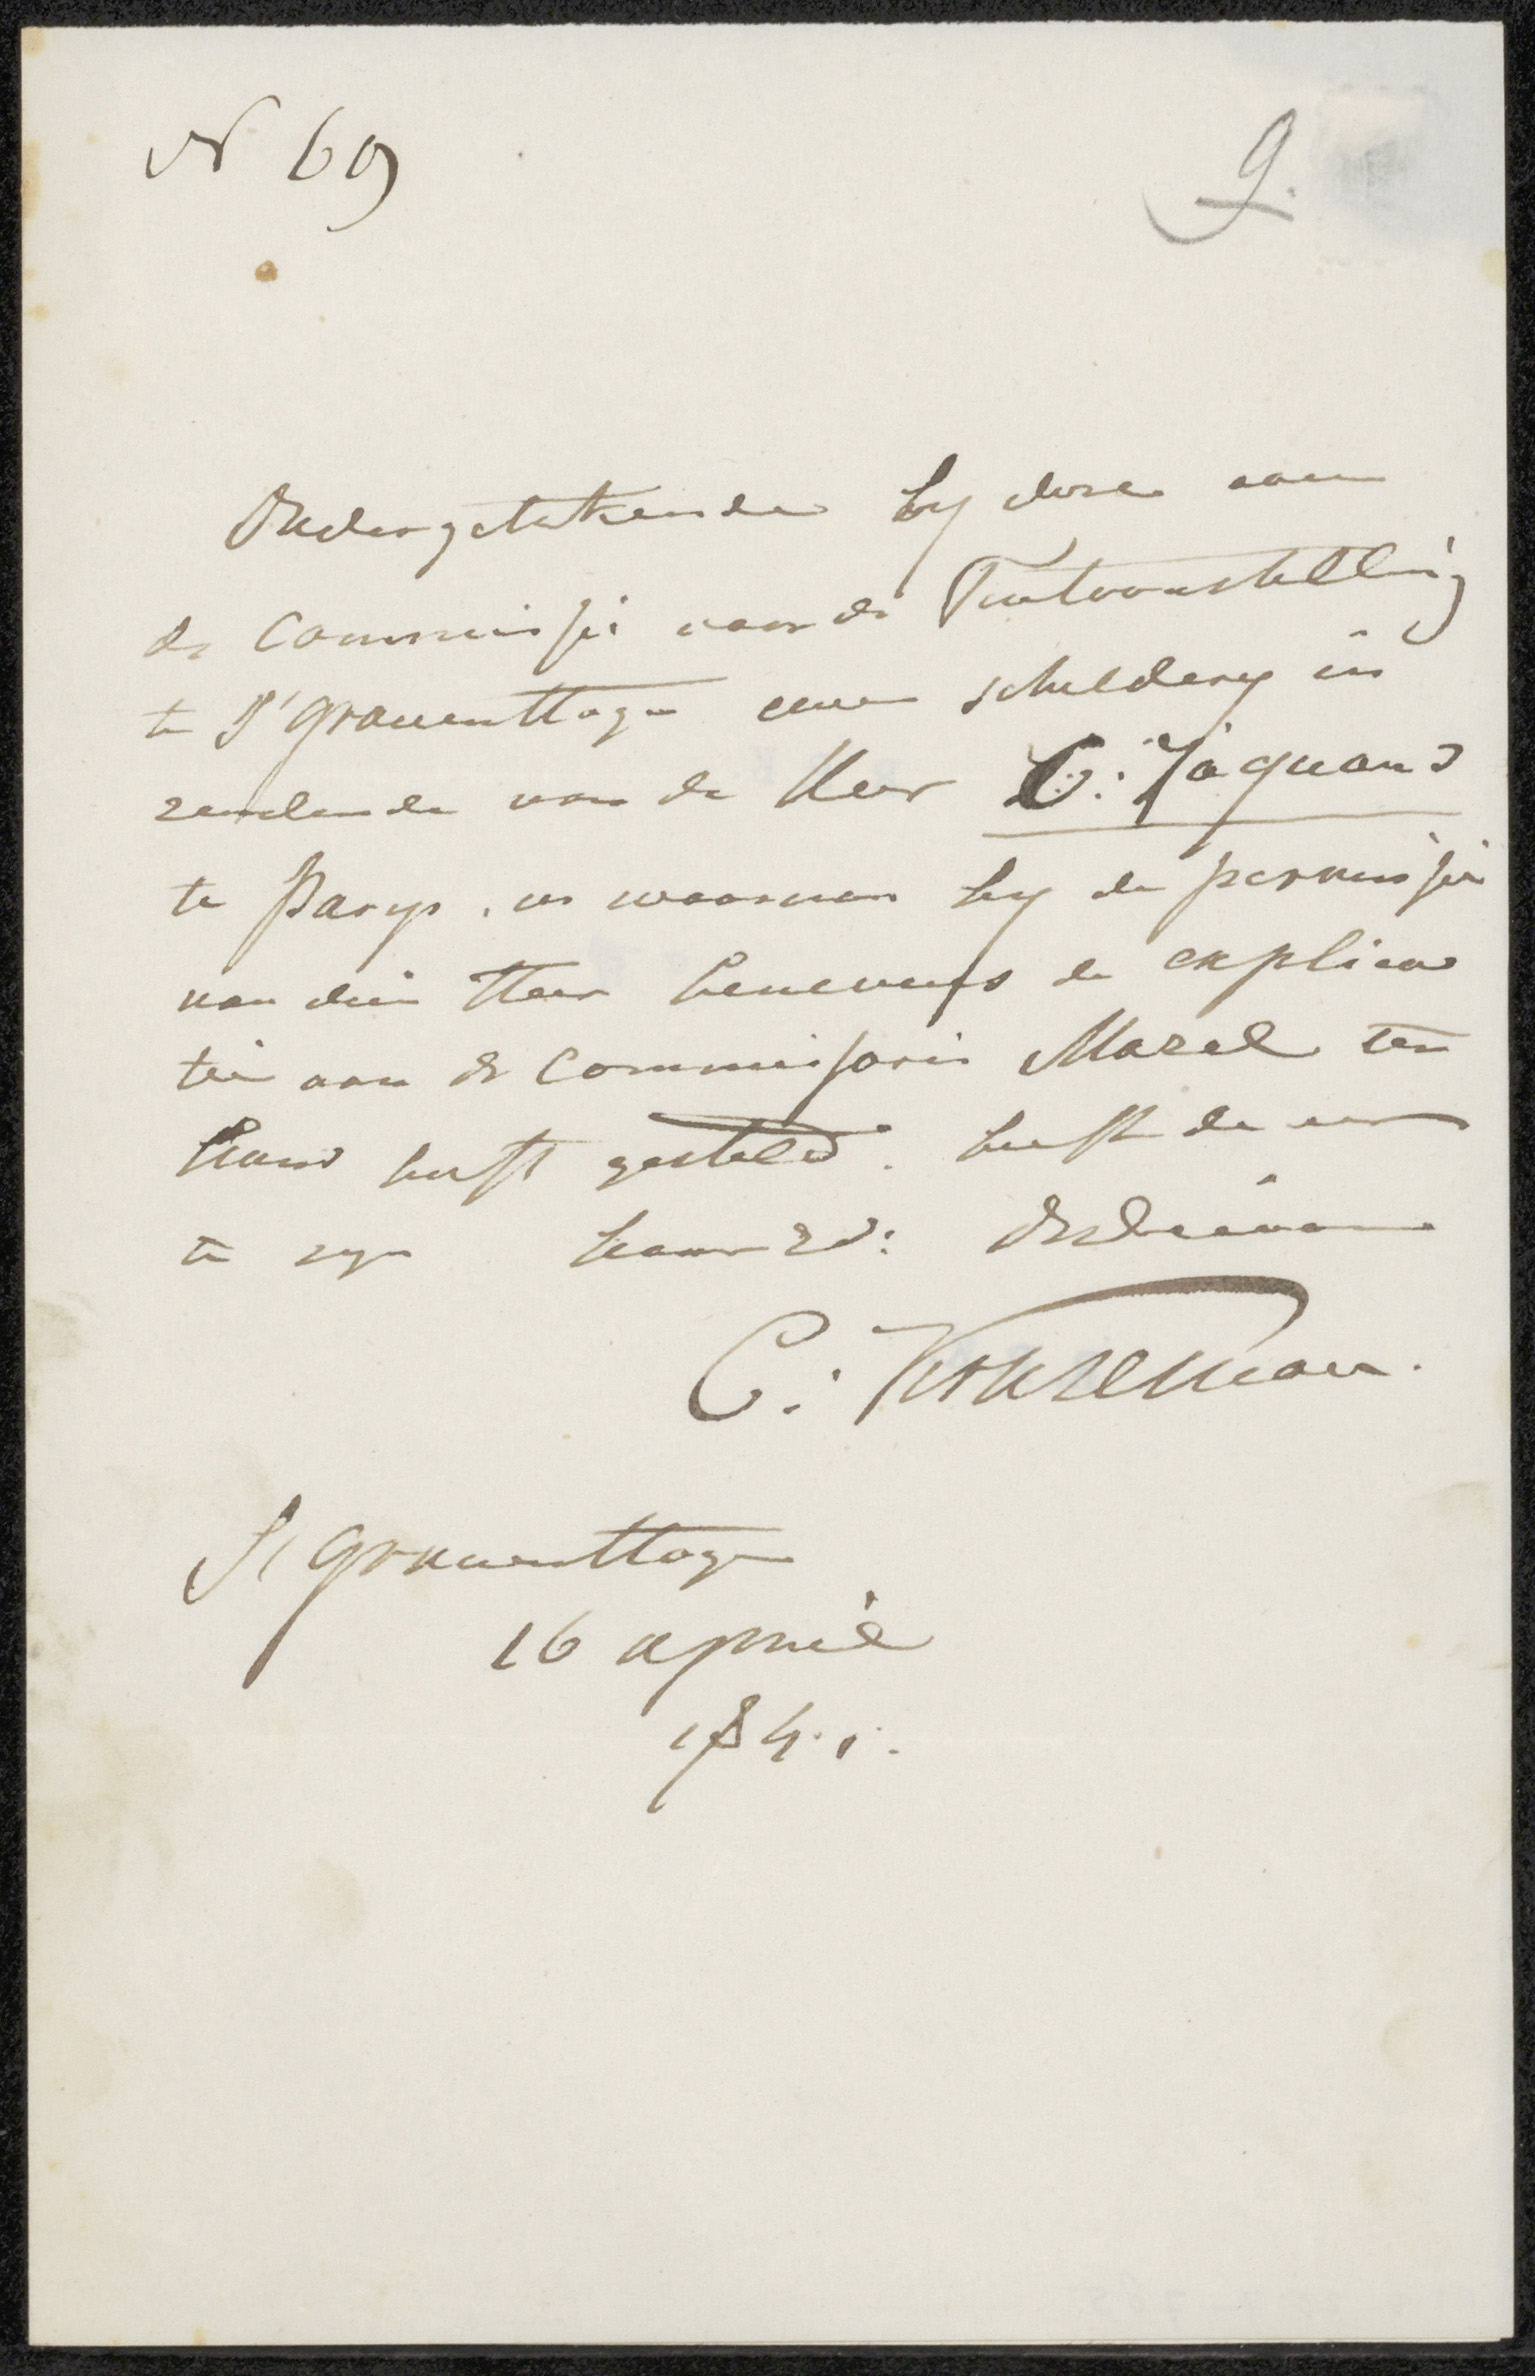 N 69
9.
Ondergetekende by deze aan
de Commissie voor de Tentoonstelling
te S'Gravenhage eene schildery in
zendende van de Heer C: Jaquand
te Parys, en waarvan hy de permissie
van dien Heer benevens de explica
tie aan de Commissaris Mazel ter
hand heeft gesteld. heeft de eer
te zyn haar Ed: Dienaar
C: Kruseman.
S'Gravenhage
16 april
1841.